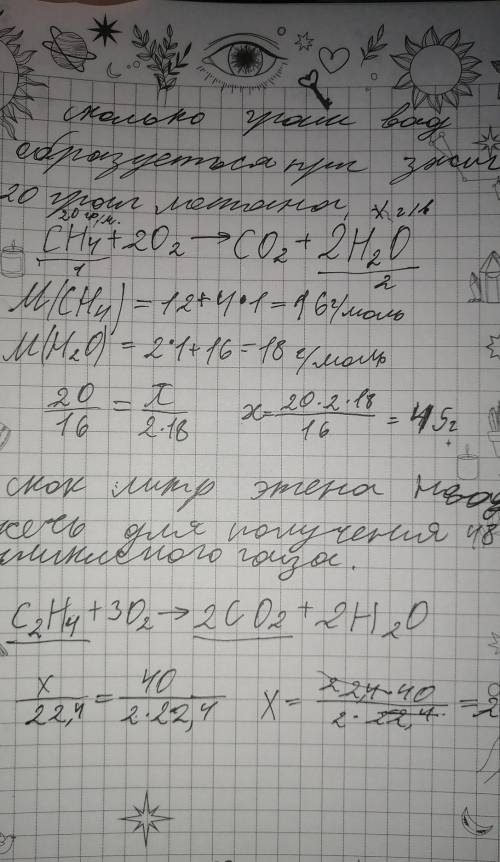 сколько грам вод
образуеться при зжиг
20 грам метана,
20 гр/м. X г/в
CH4 + 2O2 → CO2 + 2H2O
1 2
M(CH4) = 12+4·1 = 16 г/моль
M(H2O) = 2·1+16 = 18 г/моль
20/16 = X/2·18 x = 20·2·18/16 = 45г
скок литр этена
жечь для получения 48
углекислого газа.
C2H4 + 3O2 → 2CO2 + 2H2O
X/22,4 = 40/2·22,4 X = 22,4·40/2·22,4 = 2